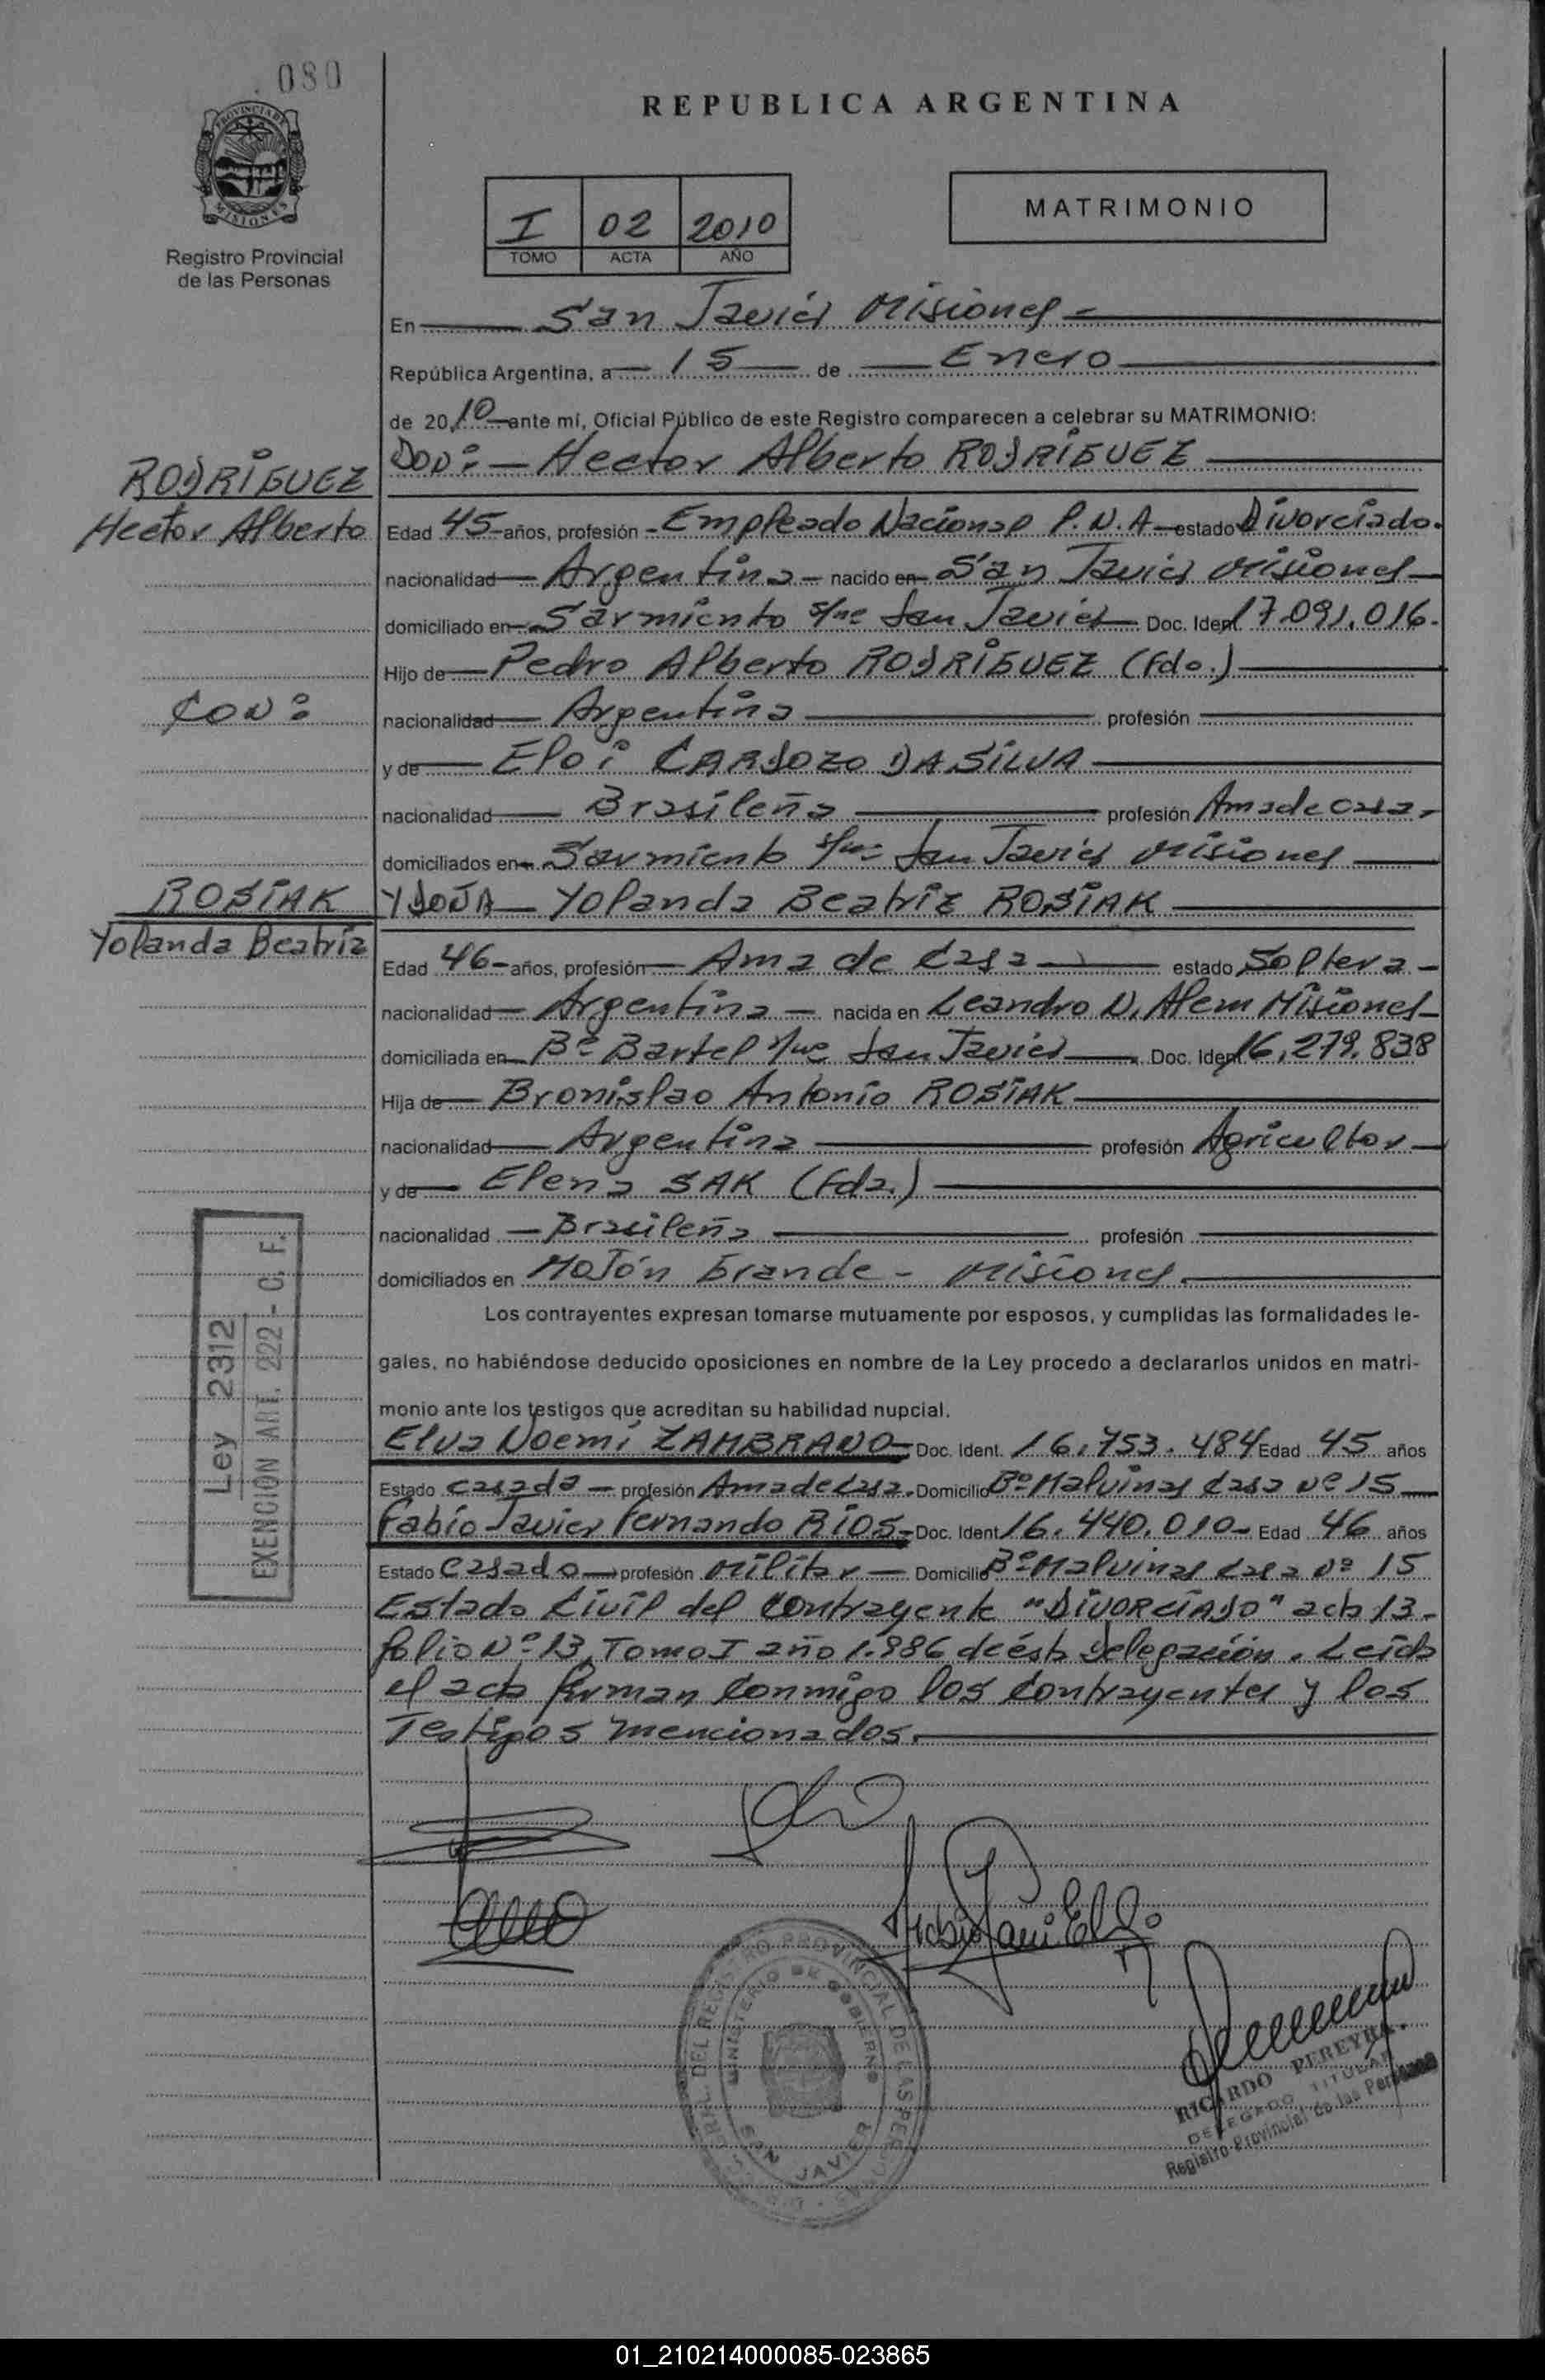 080
REPUBLICA ARGENTINA
PROVINCIA DE
MISIONES
Registro Provincial
de las Personas
I 02 2010
TOMO ACTA AÑO
MATRIMONIO
En San Javier Misiones
República Argentina, a 15 de Enero
de 2010 ante mí, Oficial Público de este Registro comparecen a celebrar su MATRIMONIO:
RODRIGUEZ
Hector Alberto
DON: Hector Alberto RODRIGUEZ
Edad 45 años, profesión Empleado Nacional P.N.A estado Divorciado.
nacionalidad Argentina nacido en San Javier Misiones
domiciliado en Sarmiento s/nº San Javier Doc. Ident. 17.091.016.
Hijo de Pedro Alberto RODRIGUEZ (Fdo.)
CON:
nacionalidad Argentina profesión
y de Eloi CARDOZO DA SILVA
nacionalidad Brasileña profesión Ama de casa,
domiciliados en Sarmiento s/nº San Javier Misiones
ROSIAK
Yolanda Beatriz
Y DOÑA Yolanda Beatriz ROSIAK
Edad 46 años, profesión Ama de Casa estado Soltera
nacionalidad Argentina nacida en Leandro N. Alem Misiones
domiciliada en Bº Bartel s/nº San Javier Doc. Ident. 16.279.838
Hija de Bronislao Antonio ROSIAK
nacionalidad Argentina profesión Agricultor
y de Elena SAK (Fda.)
nacionalidad Brasileña profesión
domiciliados en Mojón Grande - Misiones
Los contrayentes expresan tomarse mutuamente por esposos, y cumplidas las formalidades le-
gales, no habiéndose deducido oposiciones en nombre de la Ley procedo a declararlos unidos en matri-
monio ante los testigos que acreditan su habilidad nupcial.
Ley 2312
EXENCION ART. 222 - C. F.
Elva Noemí ZAMBRANO Doc. Ident. 16.753.484 Edad 45 años
Estado casada profesión Ama de casa. Domicilio Bº Malvinas Casa Nº 15
Fabio Javier Fernando RIOS Doc. Ident 16.440.010 Edad 46 años
Estado Casado profesión Militar Domicilio Bº Malvinas Casa Nº 15
Estado Civil del Contrayente "DIVORCIADO" acta 13-
folio Nº 13, Tomo I año 1.986 de ésta Delegación. Leida
el acta firman Conmigo los Contrayentes y los
Testigos mencionados.
REGISTRO PROVINCIAL DE LAS PERSONAS
MINISTERIO DE GOBIERNO
SAN JAVIER
RICARDO PEREYRA
DELEGADO TITULAR
Registro Provincial de las Personas
01_210214000085-023865